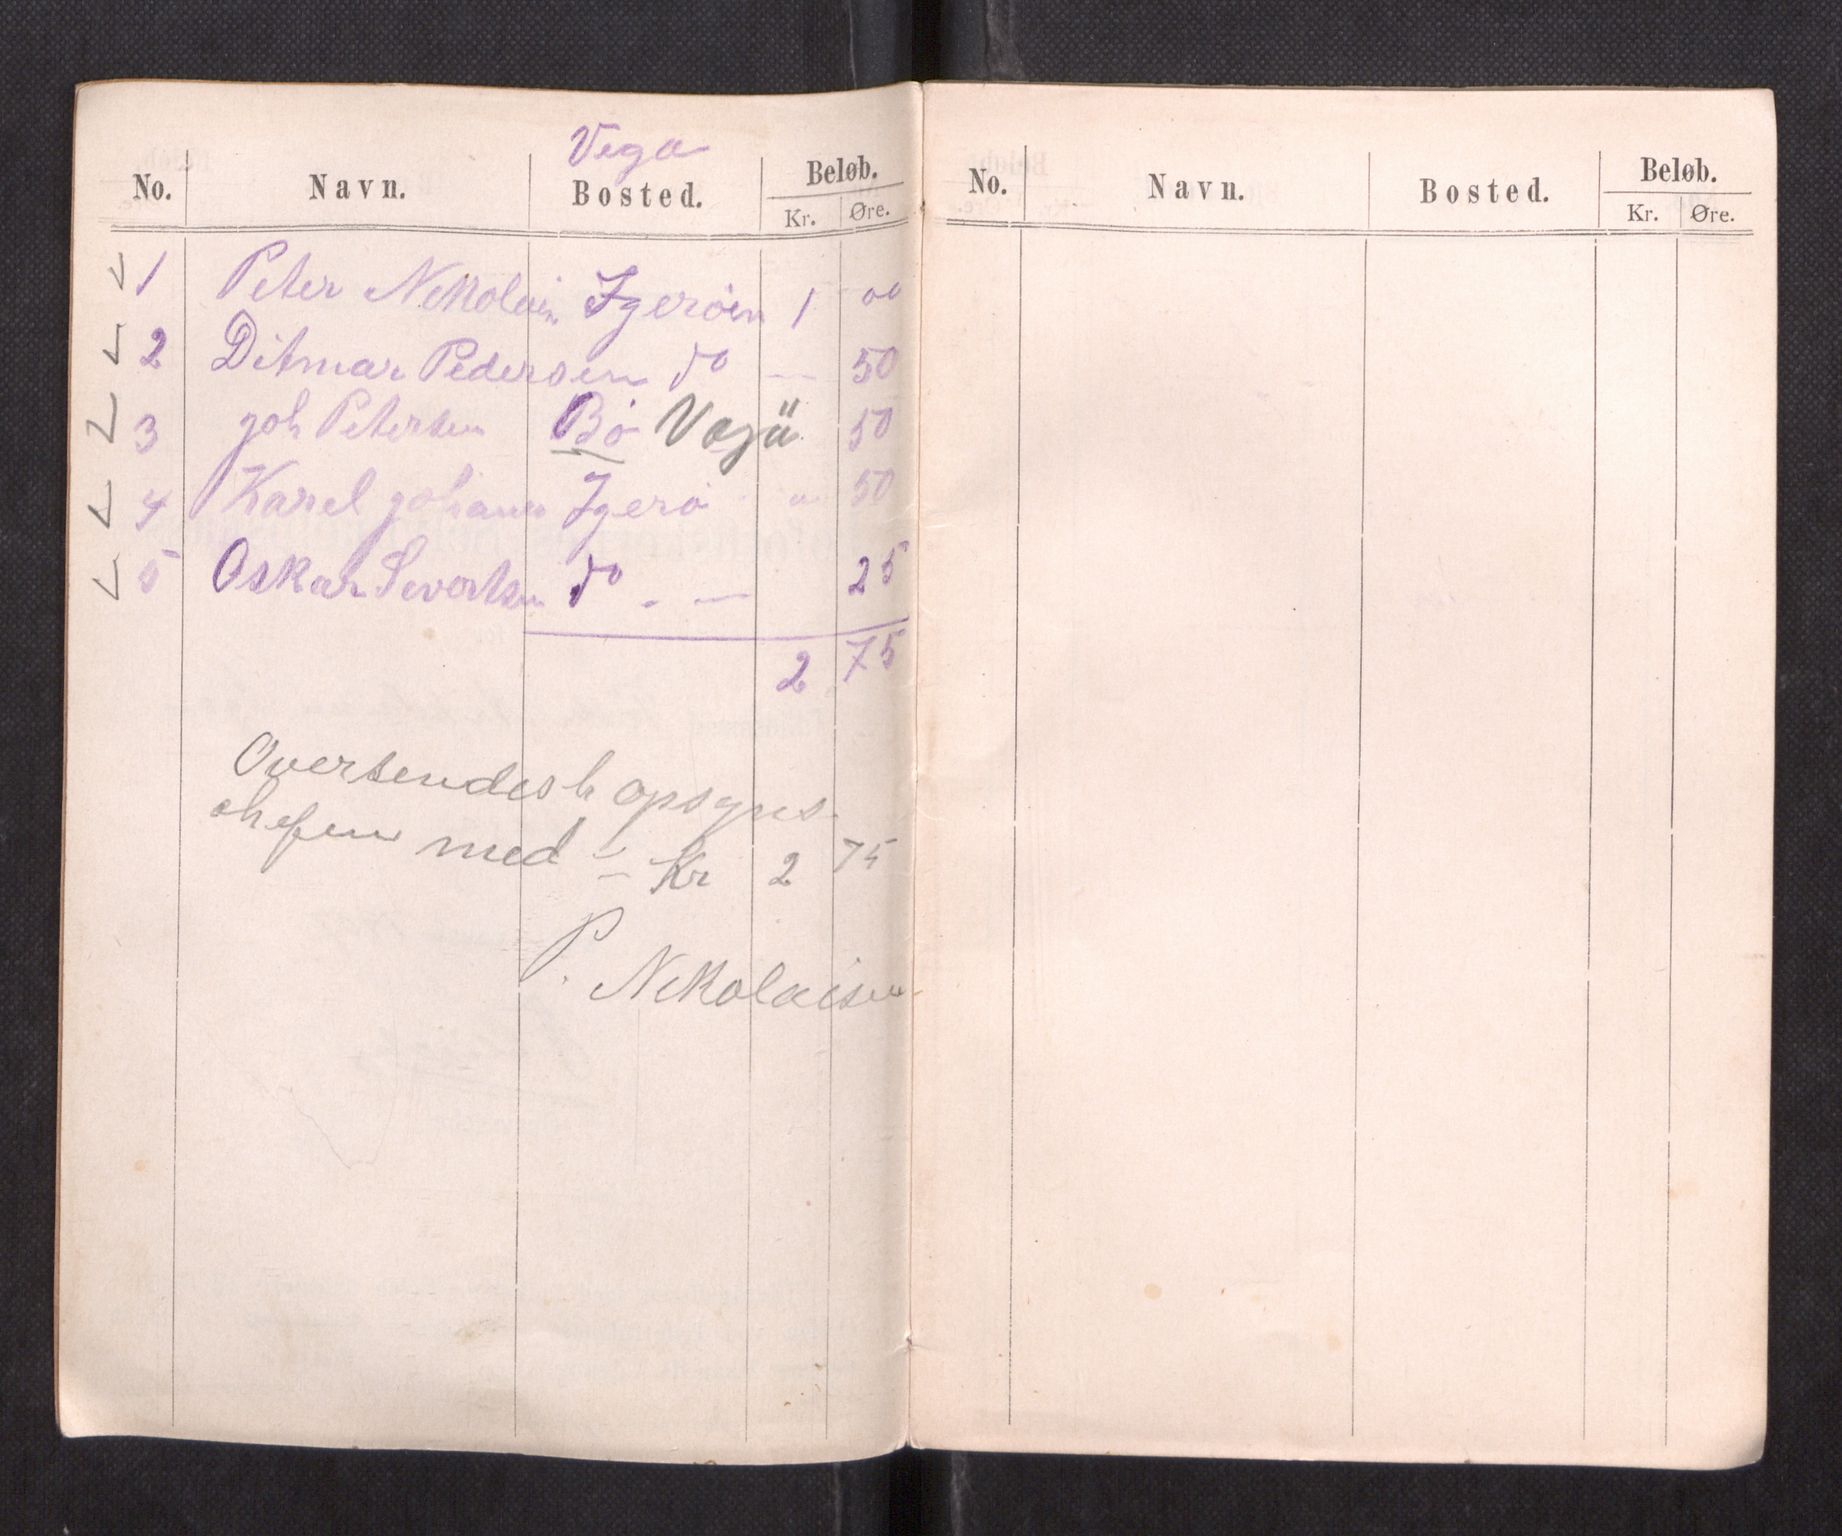 Vega
No. Navn. Bosted. Beløb.
Kr. Øre.
1 Peter Nikolaisen Igerøen 1 00
2 Ditmar Pedersen do — 50
3 Joh Petersen Bø 50
4 Karel Johans Igerø " 50
5 Oskar Sevortsen do . — 25
2 75
Oversendes h opsyns-
chefen med - Kr 2 75
P. Nikolaisen
No. Navn. Bosted. Beløb.
Kr. Øre.